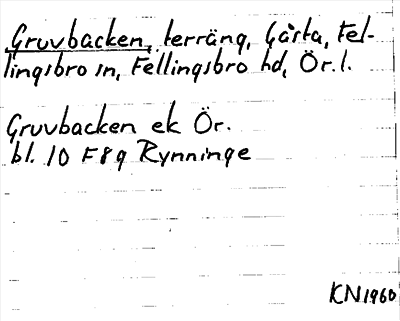 Gruvbacken, terräng, Gårta, Fel-
lingsbro sn, Fellingsbro hd, Ör. l.
Gruvbacken ek Ör.
bl. 10 F 8 g Rynninge
KN 1960